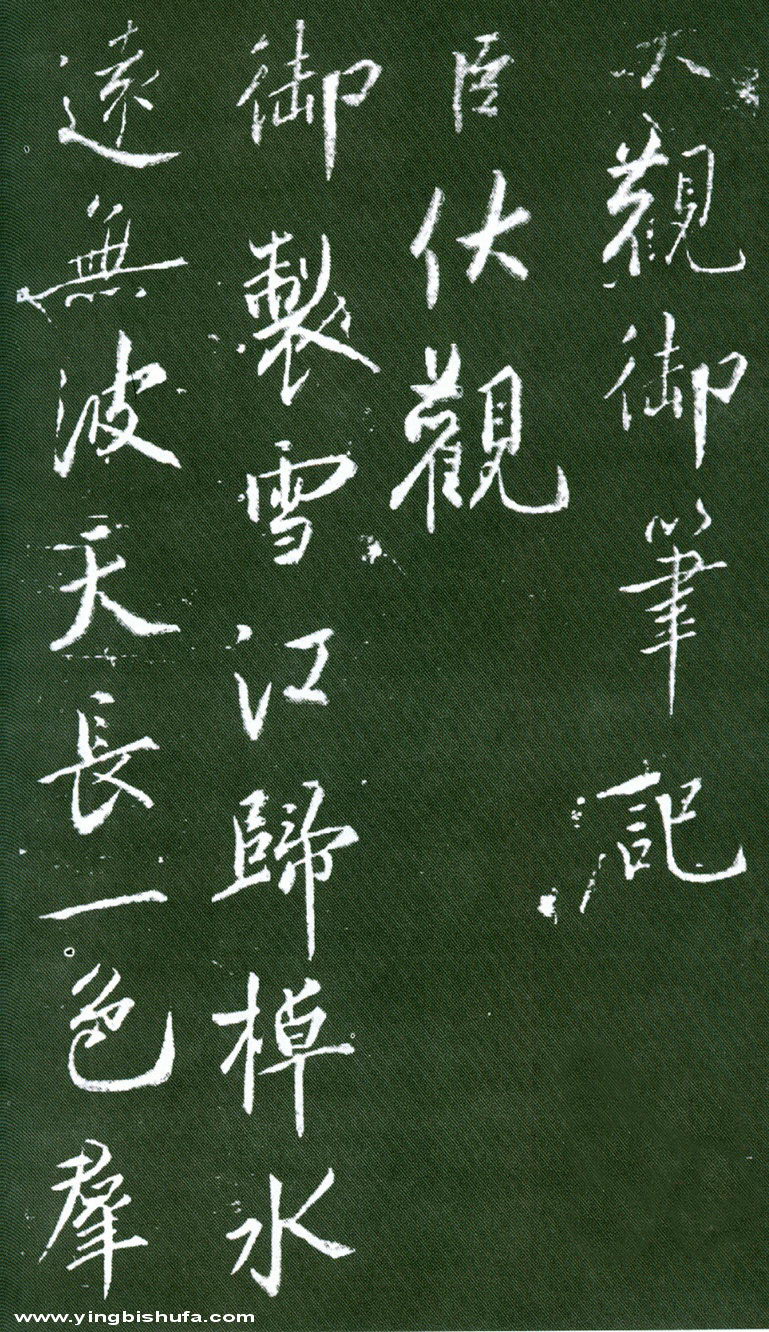 大觀御筆記
臣伏觀
御製雪江歸棹水
遠無波天長一色羣
www.yingbishufa.com